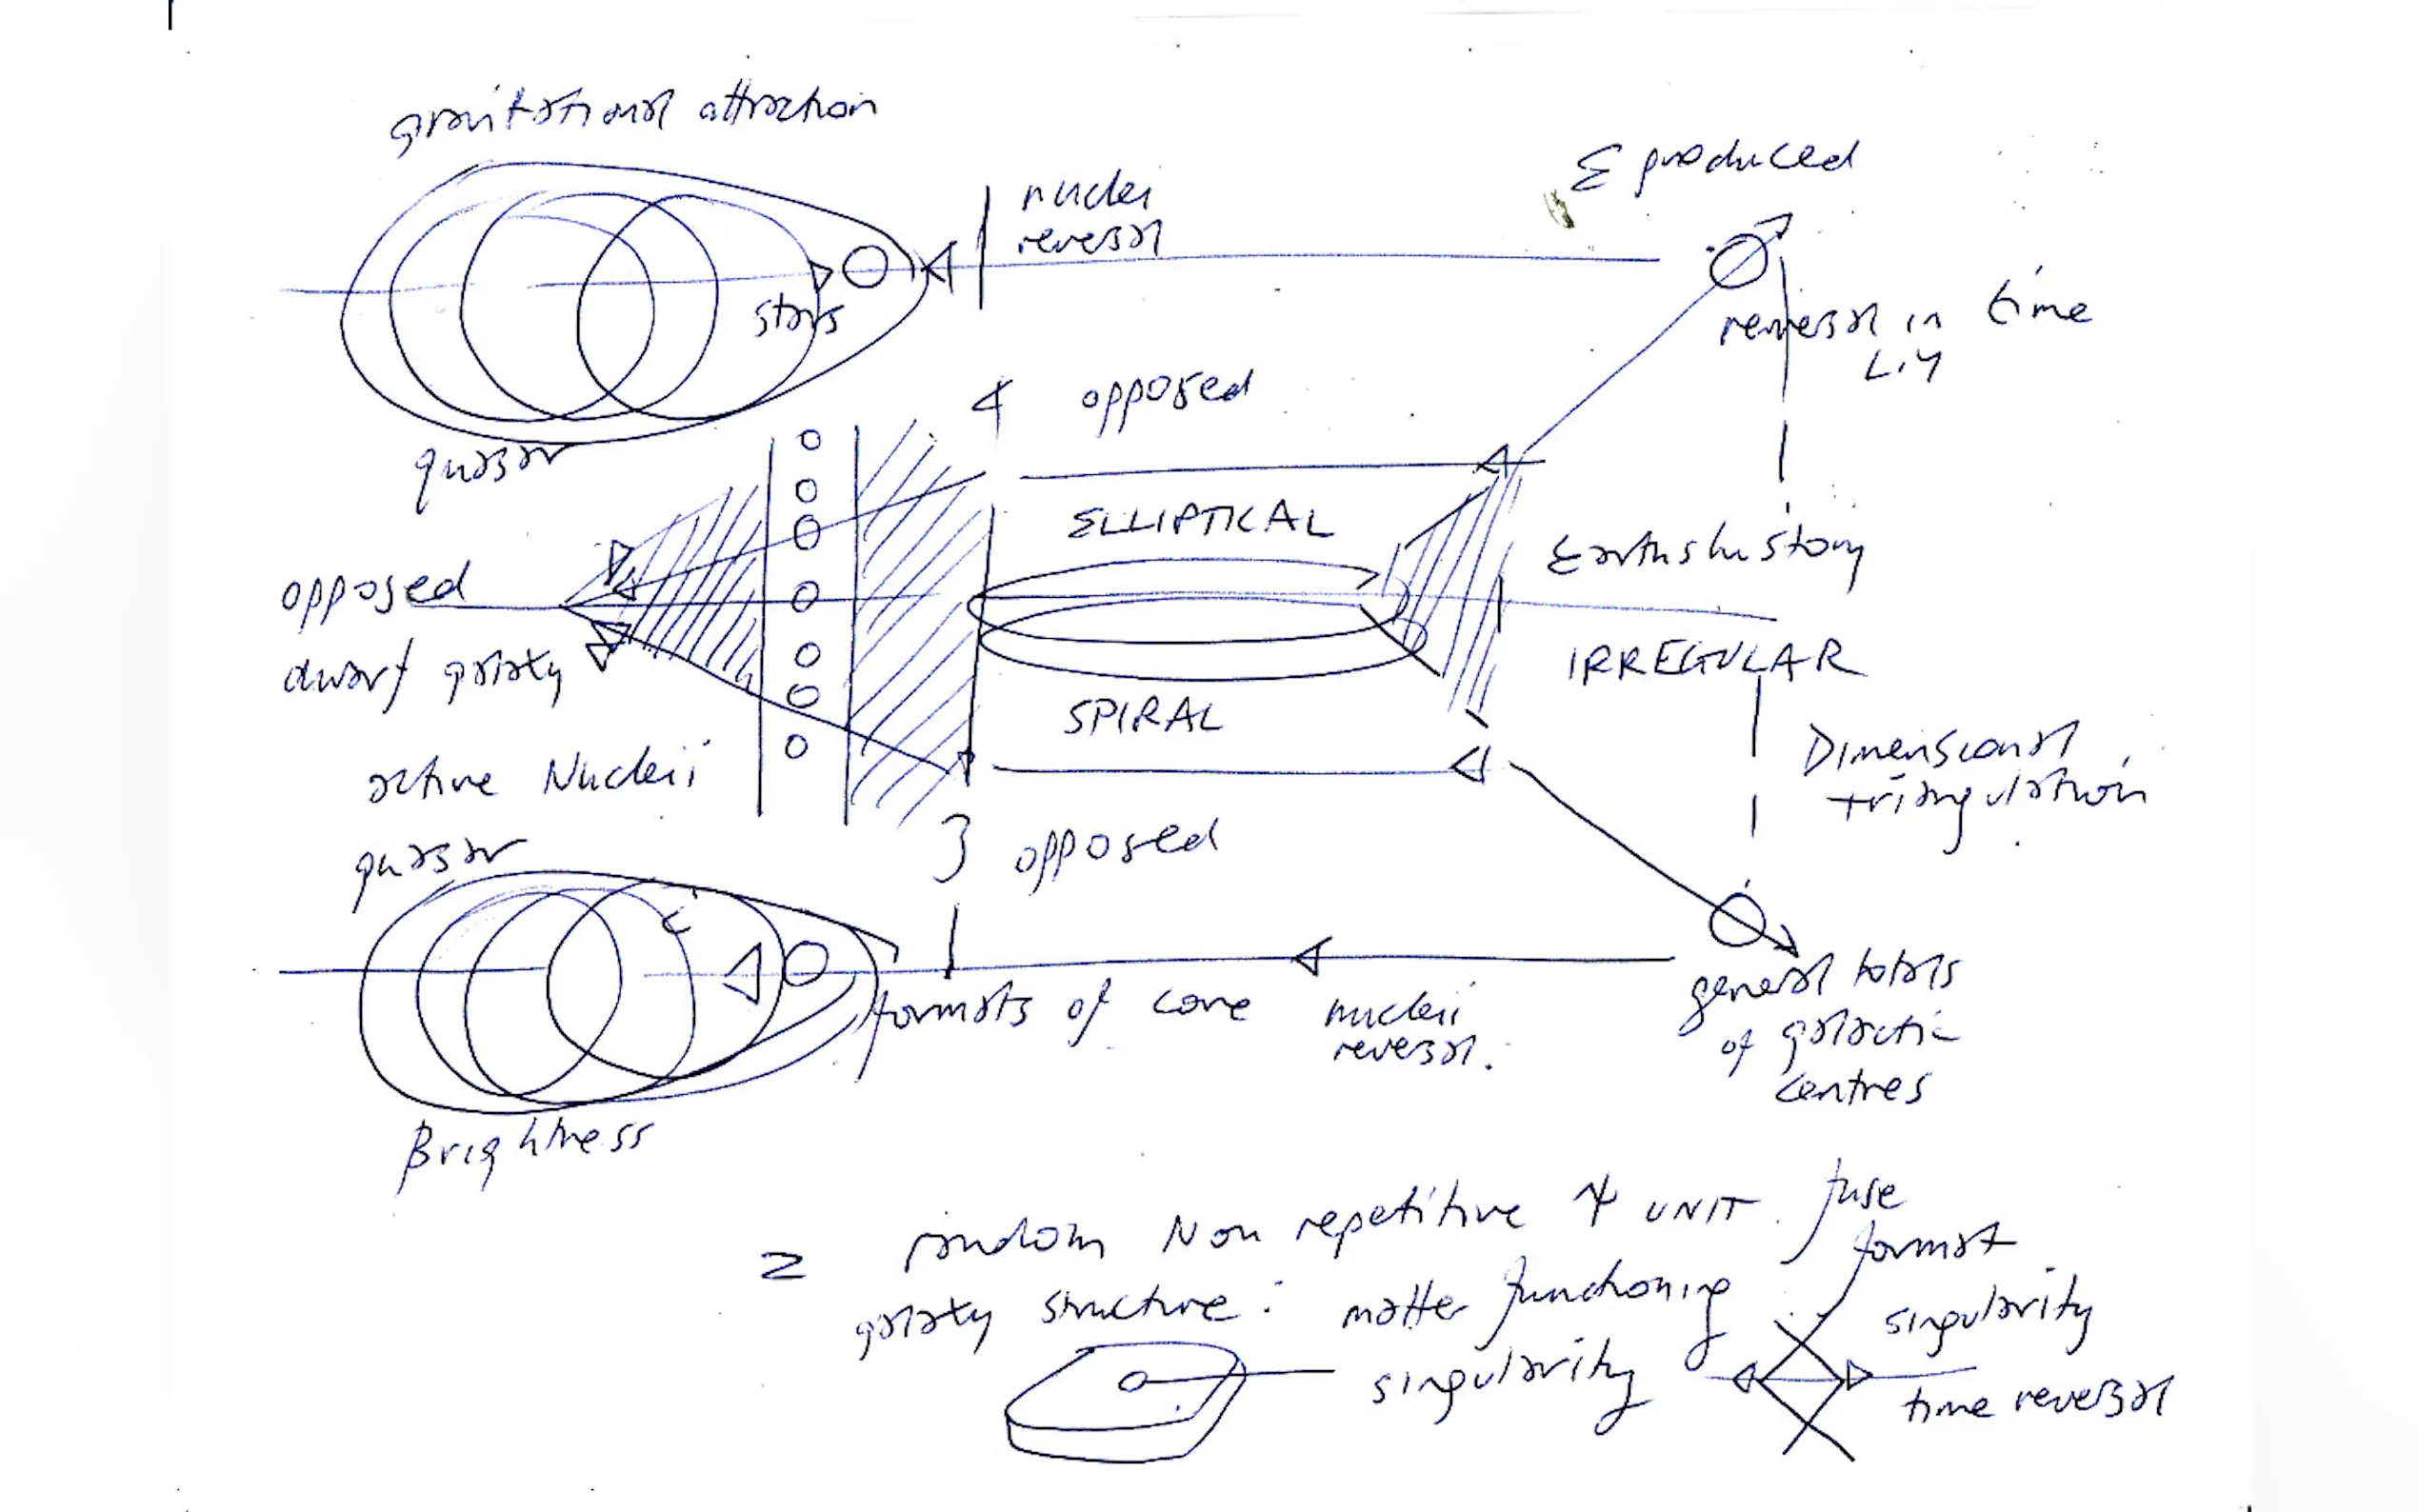 gravitational attraction
Σ produced
nuclei
reversal
stars
reversal in time
L.Y
quasar
4 opposed
ELLIPTICAL
Earths history
opposed
dwarf galaxy
IRREGULAR
SPIRAL
Dimensional
triangulation
active Nucleii
quasar
3 opposed
formats of core
nucleii
reversal.
general totals
of galactic
centres
Brightness
= random Non repetitive 4 UNIT. fuse
format
galaxy structure: matter functioning
singularity
singularity
time reversal